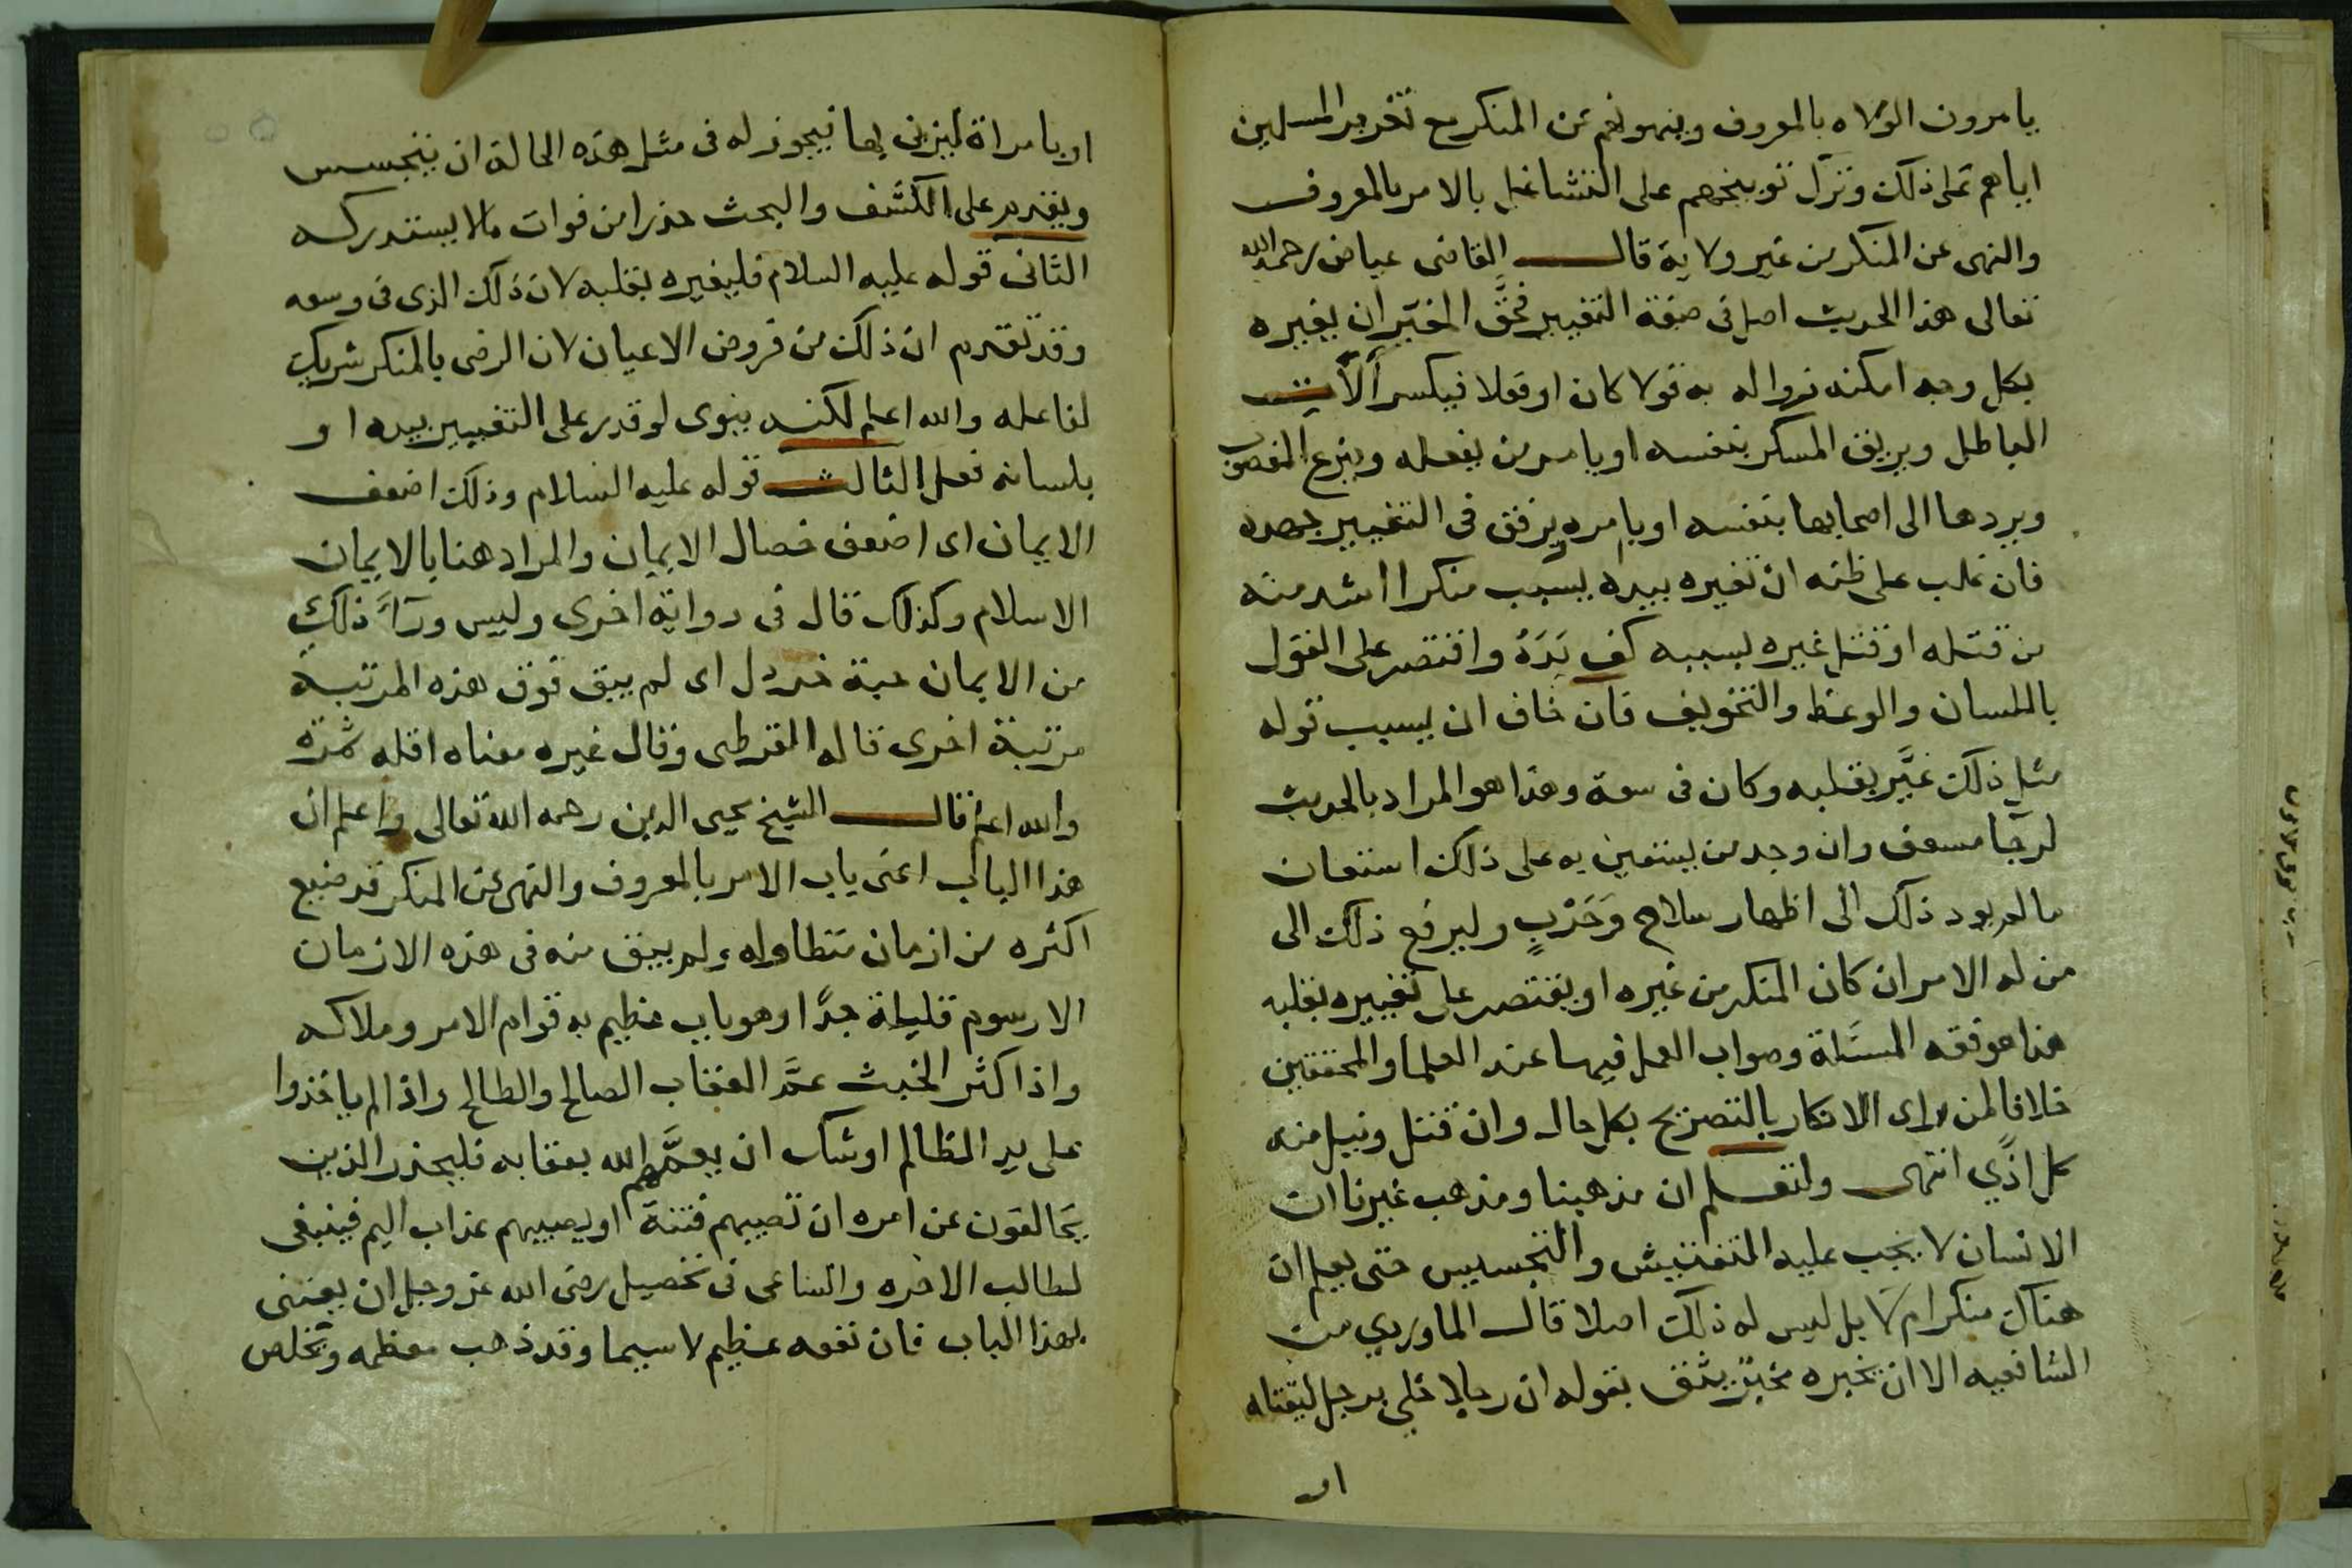 يامرون الولاه بالمعروف وينهونهم عن المنكر مع تقرير المسلمين
اياهم على ذلك وترك توبيخهم على التشاغل بالامر بالمعروف
والنهى عن المنكر من غير ولاية قال القاضى عياض رحمه الله
تعالى هذا الحديث اصل فى صفة التغيير فحَقُّ المغيّر ان يغيره
بكل وجه امكنه زواله به قولا كان او فعلا فيكسر آلات
الباطل ويريق المسكر بنفسه او يامر من يفعله وينزع المغصوب
ويردها الى اصحابها بنفسه او بامره ويرفق فى التغيير جهده
فان غلب على ظنه ان تغيره بيده يسبب منكرا اشد منه
من قتله او قتل غيره بسببه كف يَدَهُ واقتصر على القول
باللسان والوعظ والتخويف فان خاف ان يسبب قوله
مثل ذلك غيَّر بقلبه وكان فى سعة وهذا هو المراد بالحديث
وان وجد من يستعين به على ذلك استعان
ما لم يود ذلك الى اظهار سلاح وَحَرْبٍ وليرفع ذلك الى
من له الامر ان كان المنكر من غيره او يقتصر على تغييره بقلبه
هذا هو فقه المسئلة وصواب العمل فيها عند العلما والمحققين
خلافا لمن راى الانكار بالتصريح بكل حال وان قتل ونيل منه
كل اذًي انتهى ولتعلم ان مذهبنا ومذهب غيرنا ان
الانسان لا يجب عليه التفتيش والتجسيس حتى يعلم ان
هناك منكر ام لا بل ليس له ذلك اصلا قال الماوردي من
الشافعيه الا ان يخبره مخبرٌ يثق بقوله ان رجلا خلى برجل ليقتله
او
او بامراة ليزنى بها فيجوز له فى مثل هذه الحالة ان يتجسس
ويقدم على الكشف والبحث حذرا من فوات مالا يستدركه
الثانى قوله عليه السلام فليغيره بقلبه لان ذلك الذى فى وسعه
وقد تقدم ان ذلك من فروض الاعيان لان الرضى بالمنكر شريك
لفاعله والله اعلم لكنه ينوى لو قدر على التغيير بيده او
بلسانه فعل الثالث قوله عليه السلام وذلك اضعف
الايمان اى اضعف خصال الايمان والمراد هنا بالايمان
الاسلام وكذلك قال فى رواية اخرى وليس ورآءَ ذلكَ
من الايمان حبة خردل اى لم يبق فوق هذه المرتبة
مرتبة اخرى قاله القرطبى وقال غيره معناه اقله ثمرَة
والله اعلم قال الشيخ يحيى الدين رحمه الله تعالى واعلم ان
هذا الباب اعنى باب الامر بالمعروف والنهى عن المنكر قد ضيع
اكثره من ازمان متطاوله ولم يبق منه فى هذه الازمان
الا رسوم قليلة جدًّا وهو باب عظيم به قوام الامر وملاكه
واذا كثر الخبث عمَّ العقاب الصالح والطالح واذا لم ياخذوا
على يد الظالم اوشك ان يعمَّهم الله بعقابه فليحذر الذين
يخالفون عن امره ان تصيبهم فتنة او يصيبهم عذاب اليم فينبغى
لطالب الاخره والساعى فى تحصيل رضى الله عز وجل ان يعتنى
بهذا الباب فان نفعه عظيم لا سيما وقد ذهب معظمه ويخلص